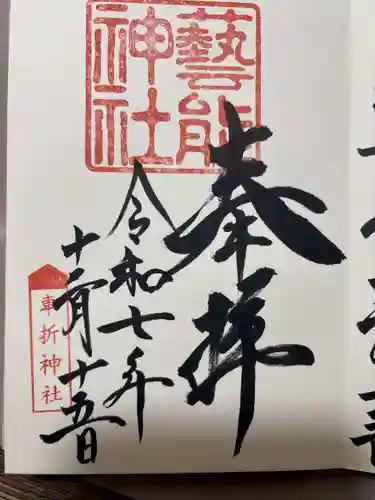 藝能神社
奉拝
令和七年
十二月廿五日
車折神社